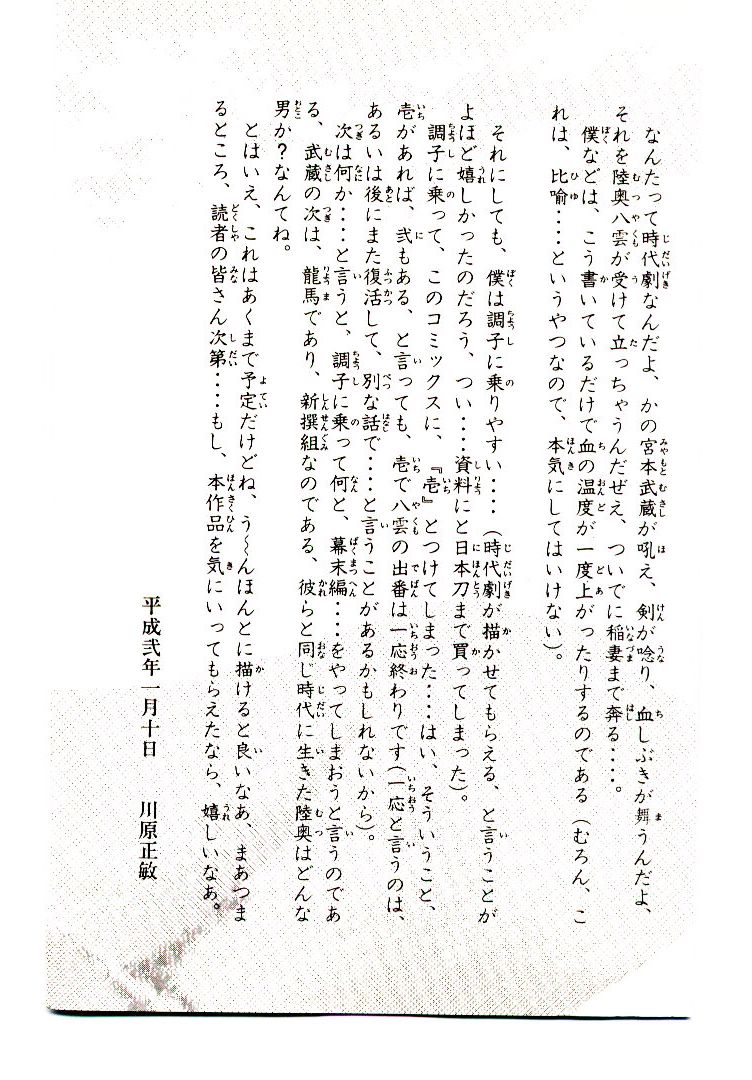 なんたって時代劇なんだよ、かの宮本武蔵が吼え、剣が唸り、血しぶきが舞うんだよ、
それを陸奥八雲が受けて立っちゃうんだぜえ、ついでに稲妻まで奔る‥‥。
僕などは、こう書いているだけで血の温度が一度上がったりするのである（むろん、こ
れは、比喩‥‥というやつなので、本気にしてはいけない）。
それにしても、僕は調子に乗りやすい‥‥（時代劇が描かせてもらえる、と言うことが
よほど嬉しかったのだろう、つい‥‥資料にと日本刀まで買ってしまった）。
調子に乗って、このコミックスに、『壱』とつけてしまった‥‥はい、そういうこと、
壱があれば、弐もある、と言っても、壱で八雲の出番は一応終わりです（一応と言うのは、
あるいは後にまた復活して、別な話で‥‥と言うことがあるかもしれないから）。
次は何か‥‥と言うと、調子に乗って何と、幕末編‥‥をやってしまおうと言うのであ
る、武蔵の次は、龍馬であり、新撰組なのである、彼らと同じ時代に生きた陸奥はどんな
男か？なんてね。
とはいえ、これはあくまで予定だけどね、う〜んほんとに描けると良いなあ、まあつま
るところ、読者の皆さん次第‥‥もし、本作品を気にいってもらえたなら、嬉しいなあ。
平成弐年一月十日　川原正敏